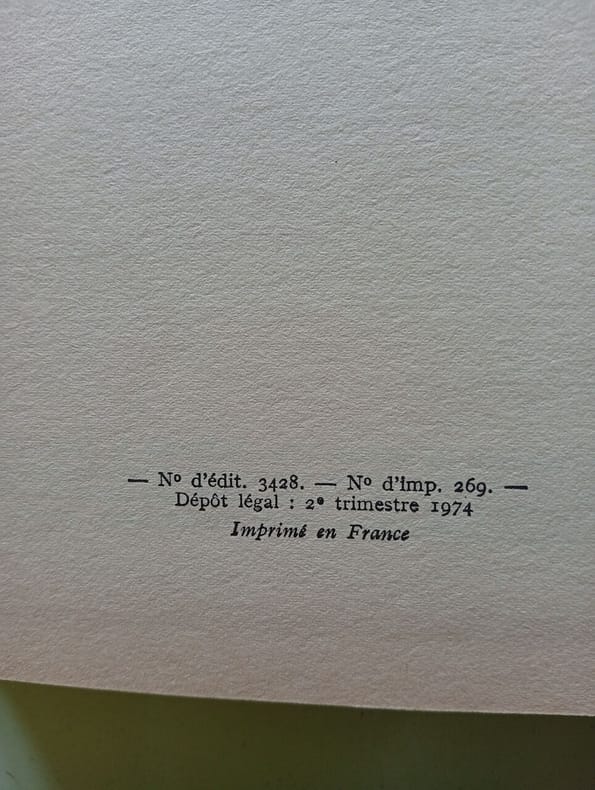 — Nº d'édit. 3428. — Nº d'imp. 269. —
Dépôt légal : 2e trimestre 1974
Imprimé en France